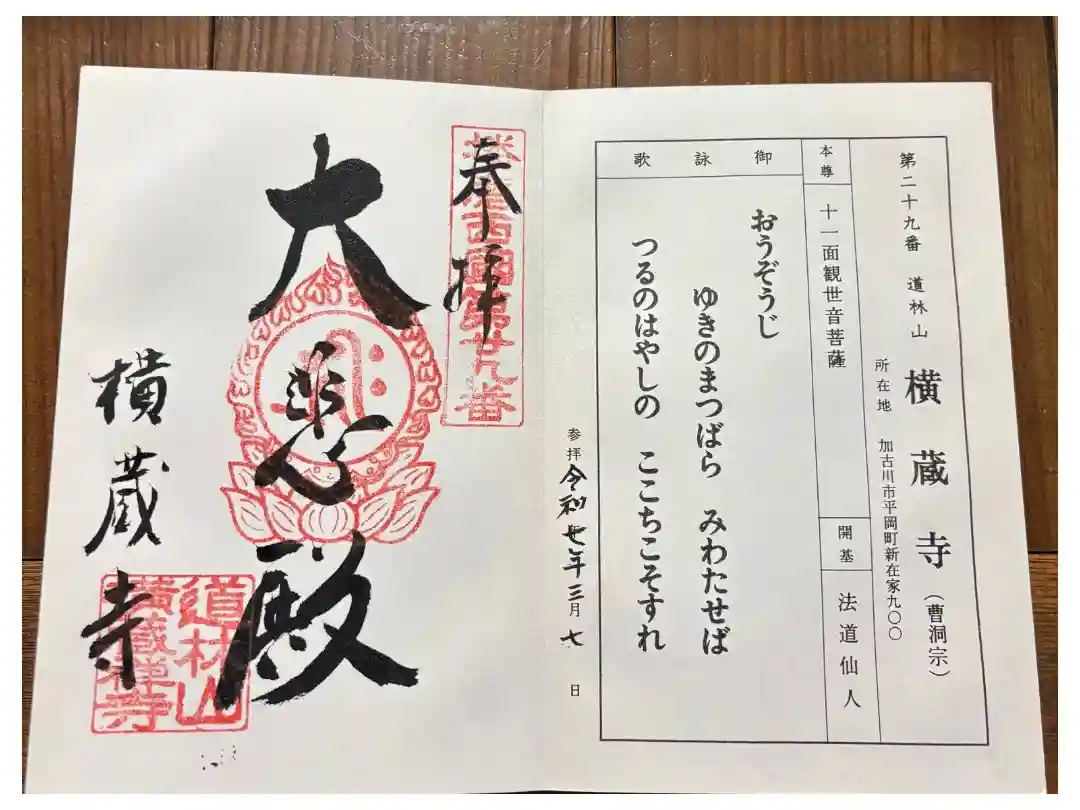 第二十九番 道林山 横蔵寺 (曹洞宗)
所在地 加古川市平岡町新在家九〇〇
本尊 十一面観世音菩薩
開基 法道仙人
御詠歌
おうぞうじ
ゆきのまつばら みわたせば
つるのはやしの ここちこそすれ
参拝 令和七年三月七日
奉拝
播磨西國第廿九番
大悲殿
横蔵寺
道林山
横蔵禅寺